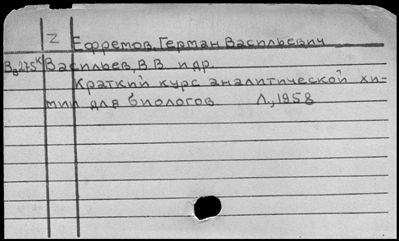 Z Ефремов, Герман Васильевич
Вв275к Васильев, В.В. и др.
Краткий курс аналитической хи-
мии для биологов Л., 1958